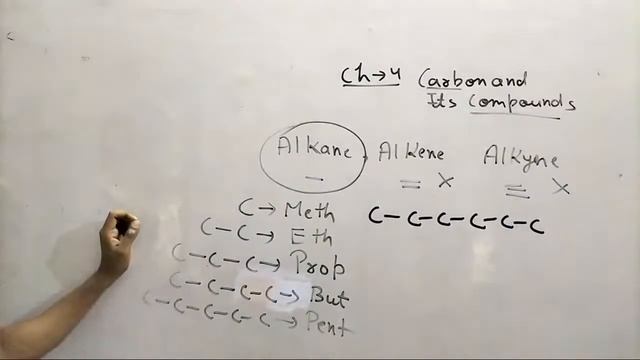 Ch→4 Carbon and
Its Compounds
Alkane Alkene Alkyne
— = X ≡ X
C→Meth C-C-C-C-C-C
C-C→Eth
C-C-C→Prop
C-C-C-C→But
C-C-C-C-C→Pent